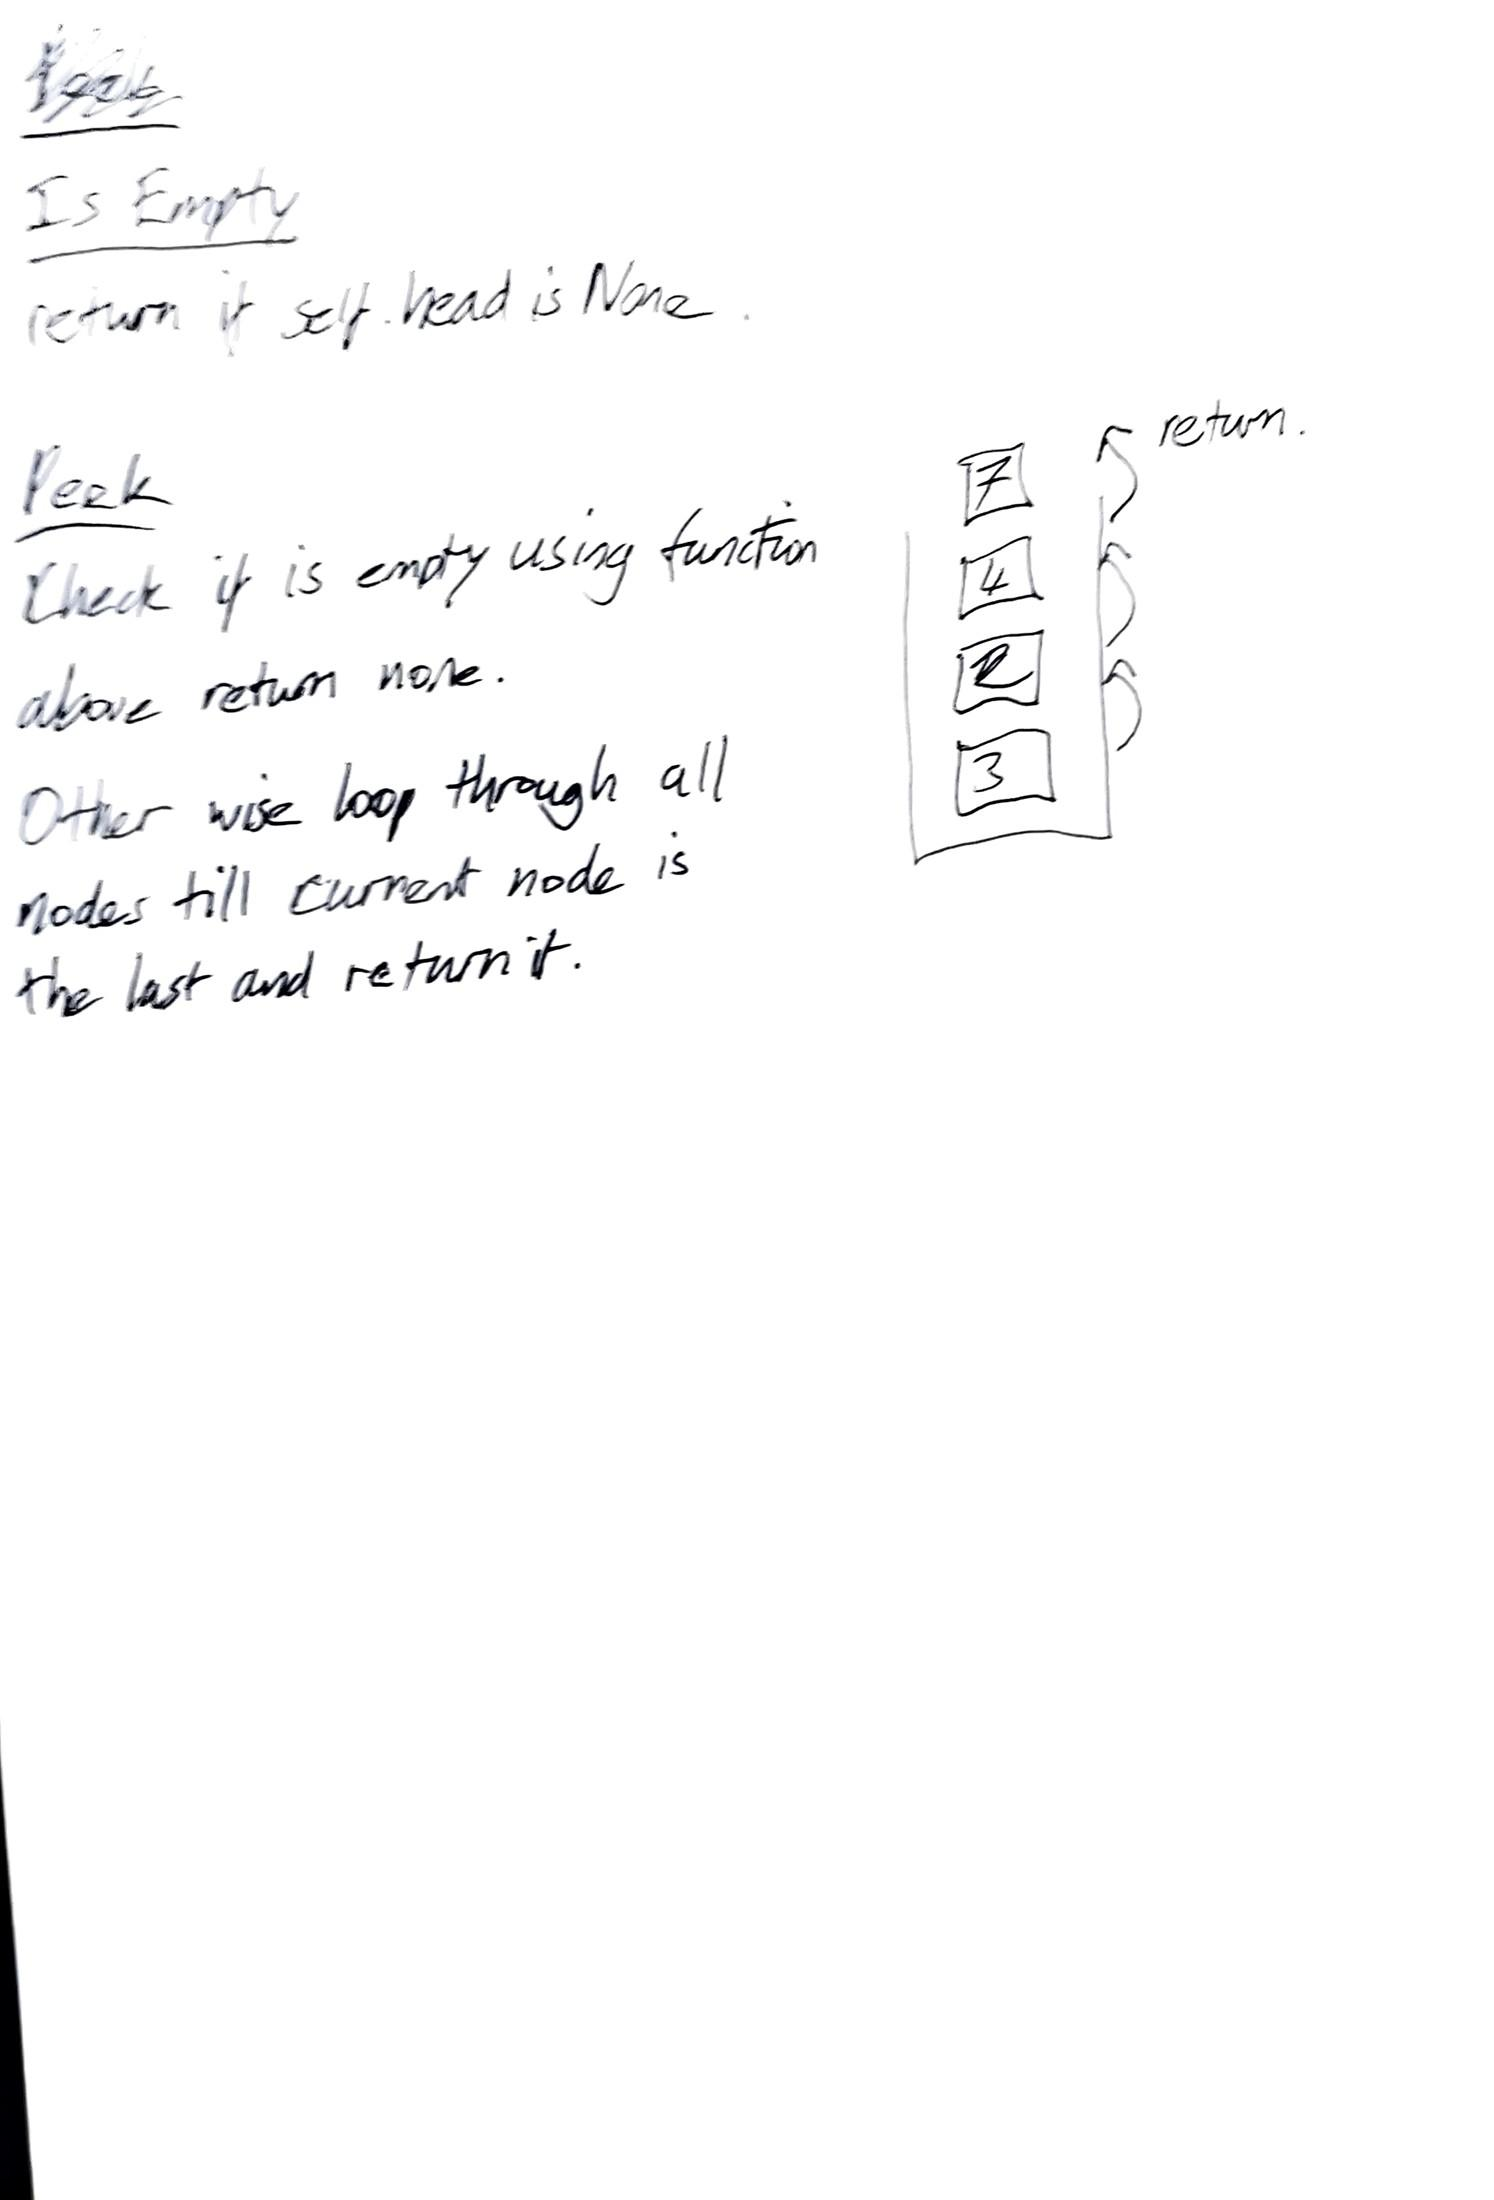 Is Empty
return if self.head is None.
Peek
Check if is empty using function
above return none.
Other wise loop through all
nodes till current node is
the last and return it.
return.
7
4
2
3